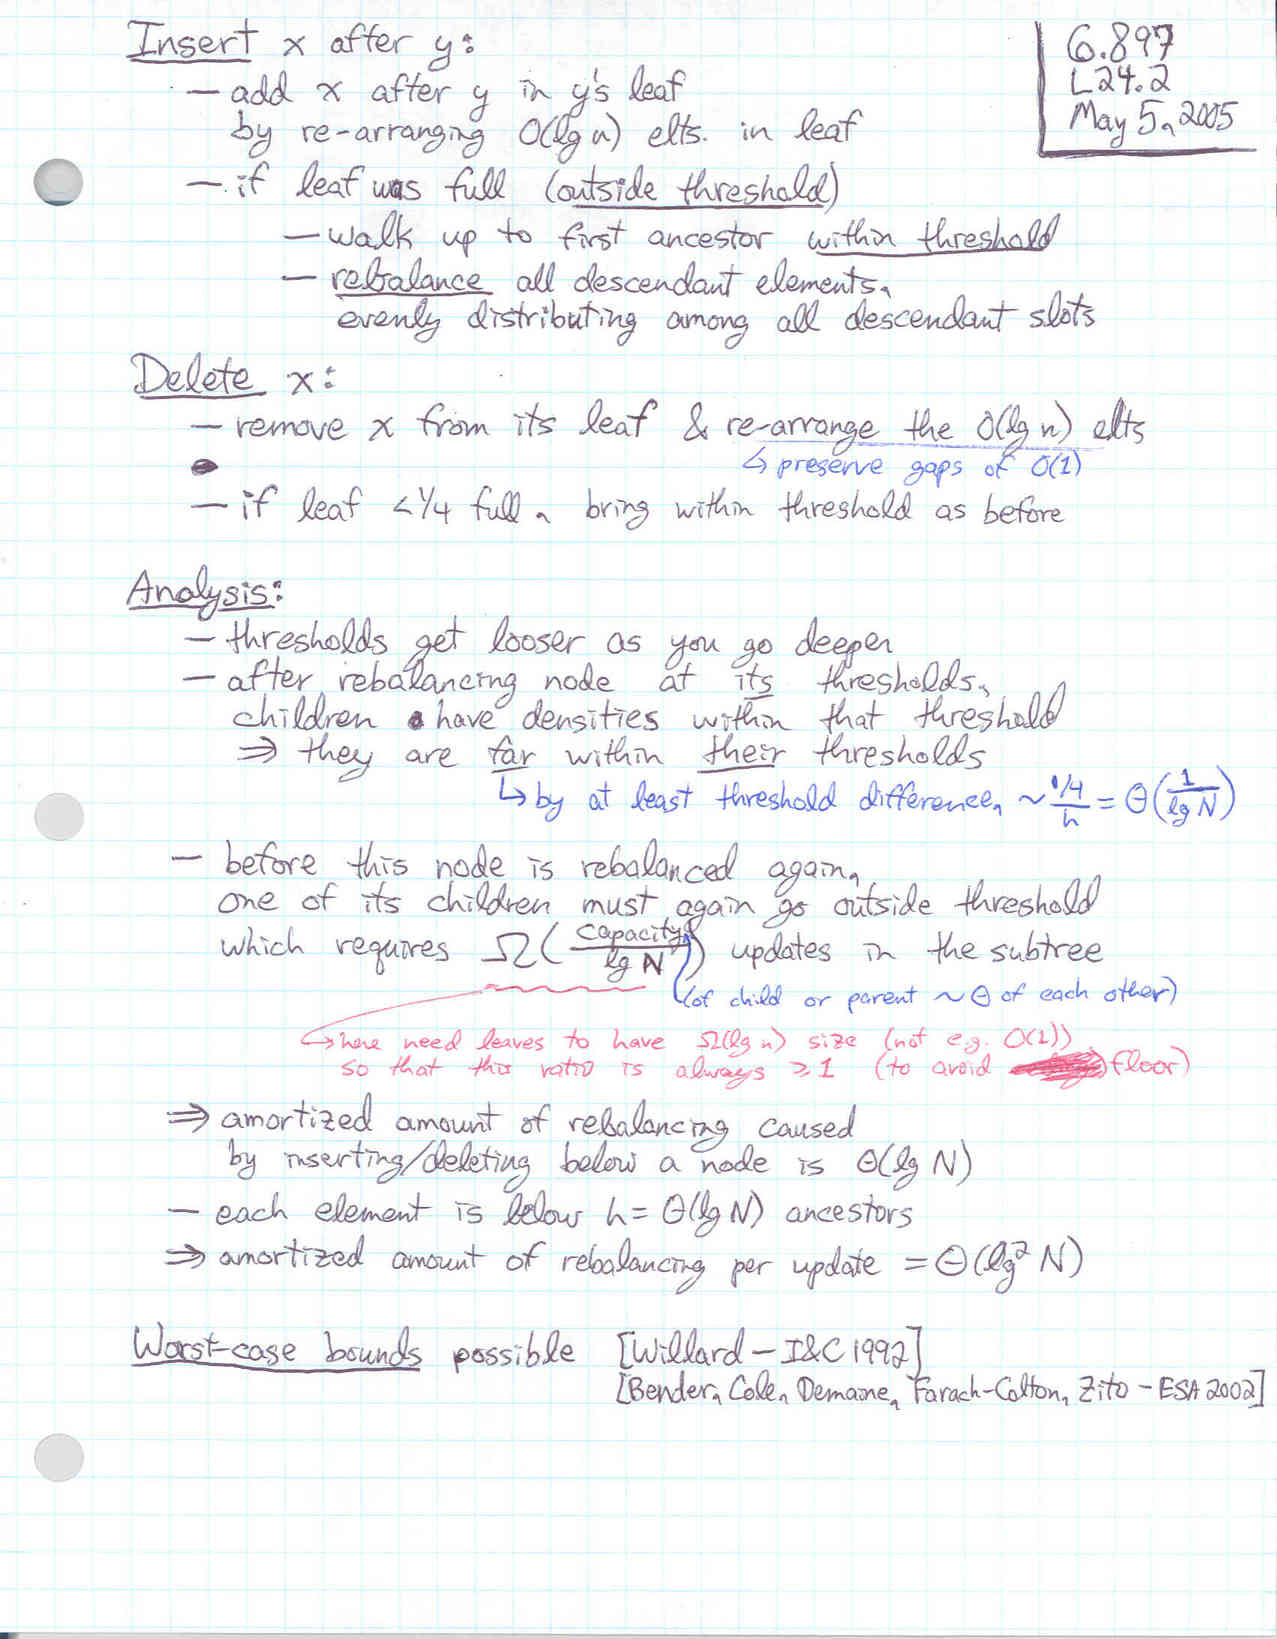 6.897
L24.2
May 5, 2005
Insert x after y:
— add x after y in y's leaf
by re-arranging O(lg n) elts. in leaf
— if leaf was full (outside threshold)
— walk up to first ancestor within threshold
— rebalance all descendant elements,
evenly distributing among all descendant slots
Delete x:
— remove x from its leaf & re-arrange the O(lg n) elts
↳ preserve gaps of O(1)
— if leaf <1/4 full, bring within threshold as before
Analysis:
— thresholds get looser as you go deeper
— after rebalancing node at its thresholds,
children have densities within that threshold
⇒ they are far within their thresholds
↳ by at least threshold difference, ~ (1/4)/h = Θ(1/lg N)
— before this node is rebalanced again,
one of its children must again go outside threshold
which requires Ω(capacity/lg N) updates in the subtree
(of child or parent ~ Θ of each other)
↳ here need leaves to have Ω(lg n) size (not e.g. O(1))
so that this ratio is always ≥ 1 (to avoid floor)
⇒ amortized amount of rebalancing caused
by inserting/deleting below a node is Θ(lg N)
— each element is below h = Θ(lg N) ancestors
⇒ amortized amount of rebalancing per update = Θ(lg² N)
Worst-case bounds possible [Willard — I&C 1992]
[Bender, Cole, Demaine, Farach-Colton, Zito — ESA 2002]